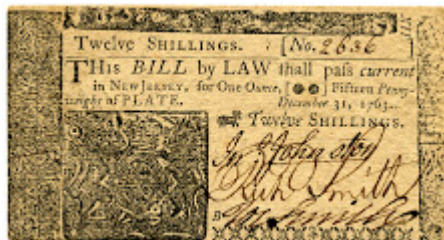 Twelve SHILLINGS. [No. 2636
THIS BILL by LAW shall pass current
in NEW JERSEY, for One Ounce, Fifteen Penny-
weight of PLATE. December 31, 1763.
Twelve SHILLINGS.
John
Smith
Smith